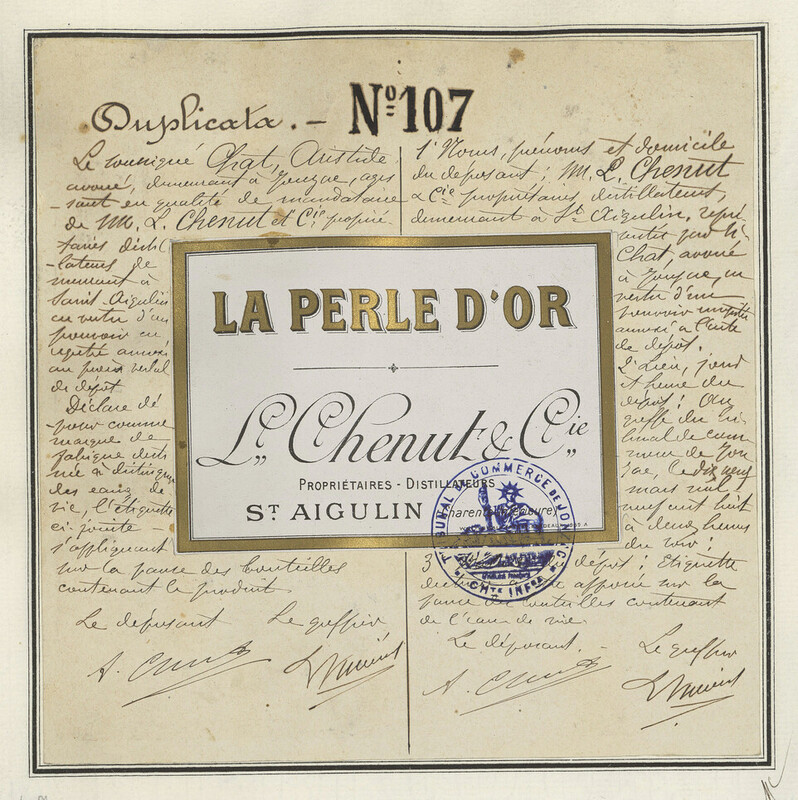 Duplicata. - Nº 107
Le soussigné Chat, Aristide
avoué, demeurant à Jonzac, agis
-sant en qualité de mandataire
de MM. L. Chenut et Cie proprié
taires distil
-lateurs de
meurant à
Saint-Aigulin
en vertu d'un
pouvoir en
annexé
au procès verbal
de dépôt
Déclare dé
-poser comme
marque de
fabrique desti
née à distinguer
des eaux de
vie, l'étiquette
ci-jointe -
s'appliquant
sur la panse des bouteilles
contenant le produit.
Le déposant Le greffier
1º Noms, prénoms et domicile
du déposant; MM. L. Chenut
& Cie propriétaires, distillateurs,
demeurant à St Aigulin, repré
sentés par Mr
Chat, avoué
à Jonzac, en
vertu d'un
pouvoir
annexé à l'acte
de dépôt.
2º Lieu, jour
et heure du
dépôt: Au
greffe du tri
bunal de com
merce de Jon
zac, le dix neuf
mars mil
neuf cent huit
à deux heures
du soir;
3 dépôt; Etiquette
apposée sur la
panse des bouteilles contenant
de l'eau de vie.
Le déposant. - Le greffier
LA PERLE D'OR
L. Chenut & Cie
PROPRIÉTAIRES - DISTILLATEURS
ST AIGULIN (Charente-Inférieure)
TRIBUNAL DE COMMERCE DE JONZAC
CHTE INFRE